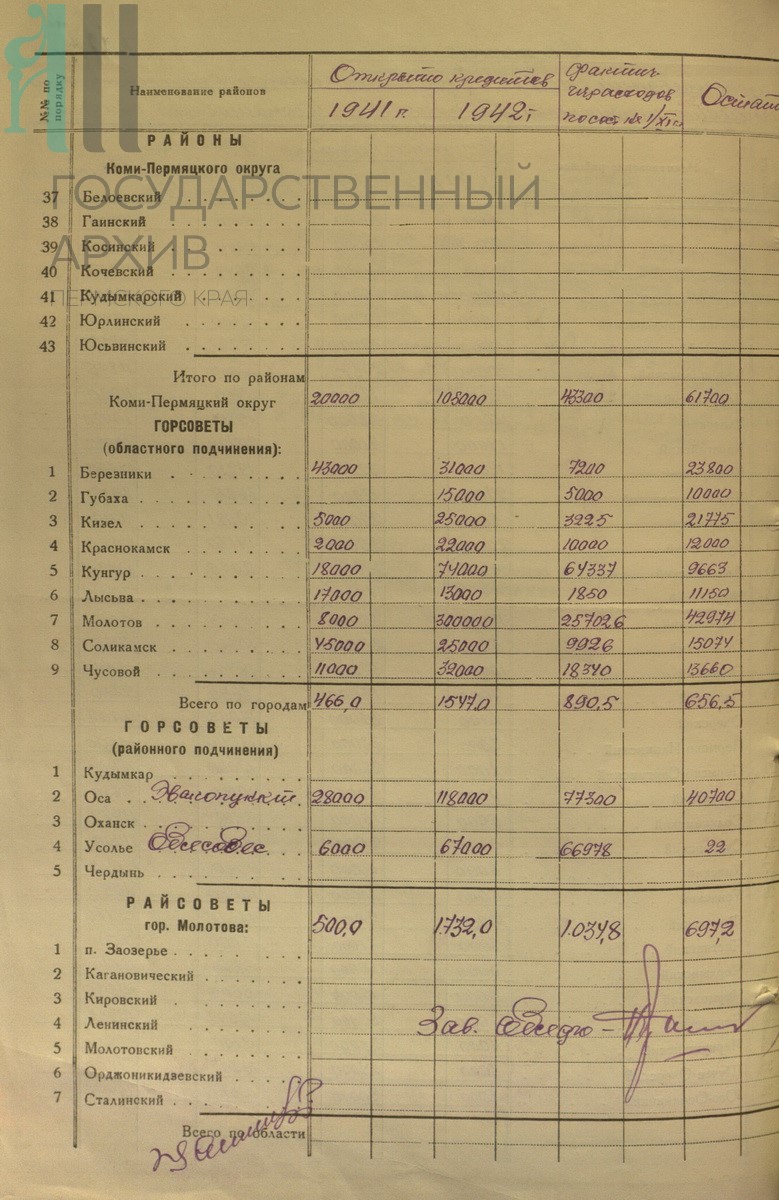 №№ по порядку
Наименование районов
Открыто кредитов
1941 г.
1942 г.
Фактич. израсходов по сост. на 1/XI
Остат
РАЙОНЫ
Коми-Пермяцкого округа
ГОСУДАРСТВЕННЫЙ
АРХИВ
ПЕРМСКОГО КРАЯ
37 Белоевский
38 Гаинский
39 Косинский
40 Кочевский
41 Кудымкарский
42 Юрлинский
43 Юсьвинский
Итого по районам
Коми-Пермяцкий округ 20000 105000 43300 61700
ГОРСОВЕТЫ
(областного подчинения):
1 Березники 43000 31000 7200 23800
2 Губаха 15000 5000 10000
3 Кизел 5000 25000 3225 21775
4 Краснокамск 2000 22000 10000 12000
5 Кунгур 18000 74000 64337 9663
6 Лысьва 17000 13000 1850 11150
7 Молотов 8000 300000 257026 42974
8 Соликамск 45000 25000 9926 15074
9 Чусовой 11000 32000 18340 13660
Всего по городам 466,0 1547,0 890,5 656,5
ГОРСОВЕТЫ
(районного подчинения)
1 Кудымкар
2 Оса 28000 118000 77300 40700
3 Оханск
4 Усолье 6000 67000 66978 22
5 Чердынь
РАЙСОВЕТЫ
гор. Молотова: 500,0 1.732,0 1.034,8 697,2
1 п. Заозерье
2 Кагановический
3 Кировский
4 Ленинский
Зав.
5 Молотовский
6 Орджоникидзевский
7 Сталинский
Всего по области